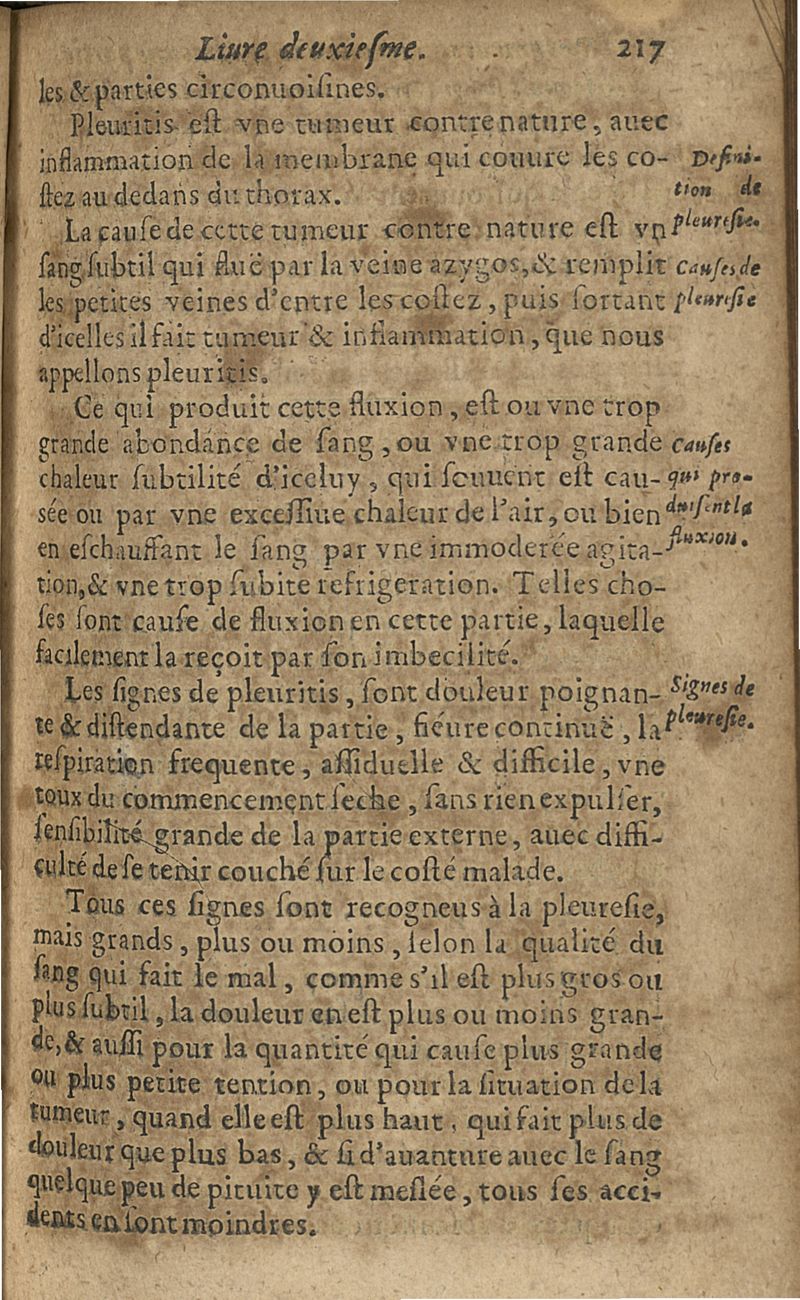 Liure deuxiesme. 217
les & parties circonuoisines.
Pleuritis est vne tumeur contre nature, auec
inflammation de la membrane qui couure les co-
stez au dedans du thorax.
Defini-
tion de
pleuresie.
La cause de cette tumeur contre nature est vn
sang subtil qui fluë par la veine azygos, & remplit
les petites veines d'entre les costez, puis sortant
d'icelles il fait tumeur & inflammation, que nous
appellons pleuritis.
Causes de
pleuresie
Ce qui produit cette fluxion, est ou vne trop
grande abondance de sang, ou vne trop grande
chaleur subtilité d'iceluy, qui souuent est cau-
sée ou par vne excessiue chaleur de l'air, ou bien
en eschauffant le sang par vne immoderée agita-
tion, & vne trop subite refrigeration. Telles cho-
ses sont cause de fluxion en cette partie, laquelle
facilement la reçoit par son imbecilité.
Causes
qui pro-
duisent la
fluxion.
Les signes de pleuritis, sont douleur poignan-
te & distendante de la partie, fiéure continuë, la
respiration frequente, assiduelle & difficile, vne
toux du commencement seche, sans rien expulser,
sensibilité grande de la partie externe, auec diffi-
culté de se tenir couché sur le costé malade.
Signes de
pleuresie.
Tous ces signes sont recogneus à la pleuresie,
mais grands, plus ou moins, selon la qualité du
sang qui fait le mal, comme s'il est plus gros ou
plus subtil, la douleur en est plus ou moins gran-
de, & aussi pour la quantité qui cause plus grande
ou plus petite tention, ou pour la situation de la
tumeur, quand elle est plus haut, qui fait plus de
douleur que plus bas, & si d'auanture auec le sang
quelque peu de pituite y est meslée, tous ses acci-
dents en sont moindres.